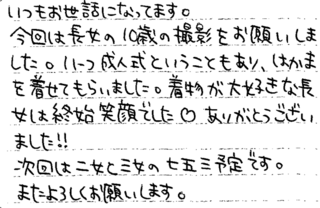 いつもお世話になってます。
今回は長女の10歳の撮影をお願いしま
した。1/2成人式ということもあり、はかま
を着せてもらいました。着物が大好きな長
女は終始笑顔でした♡ ありがとうござい
ました!!
次回は二女と三女の七五三予定です。
またよろしくお願いします。